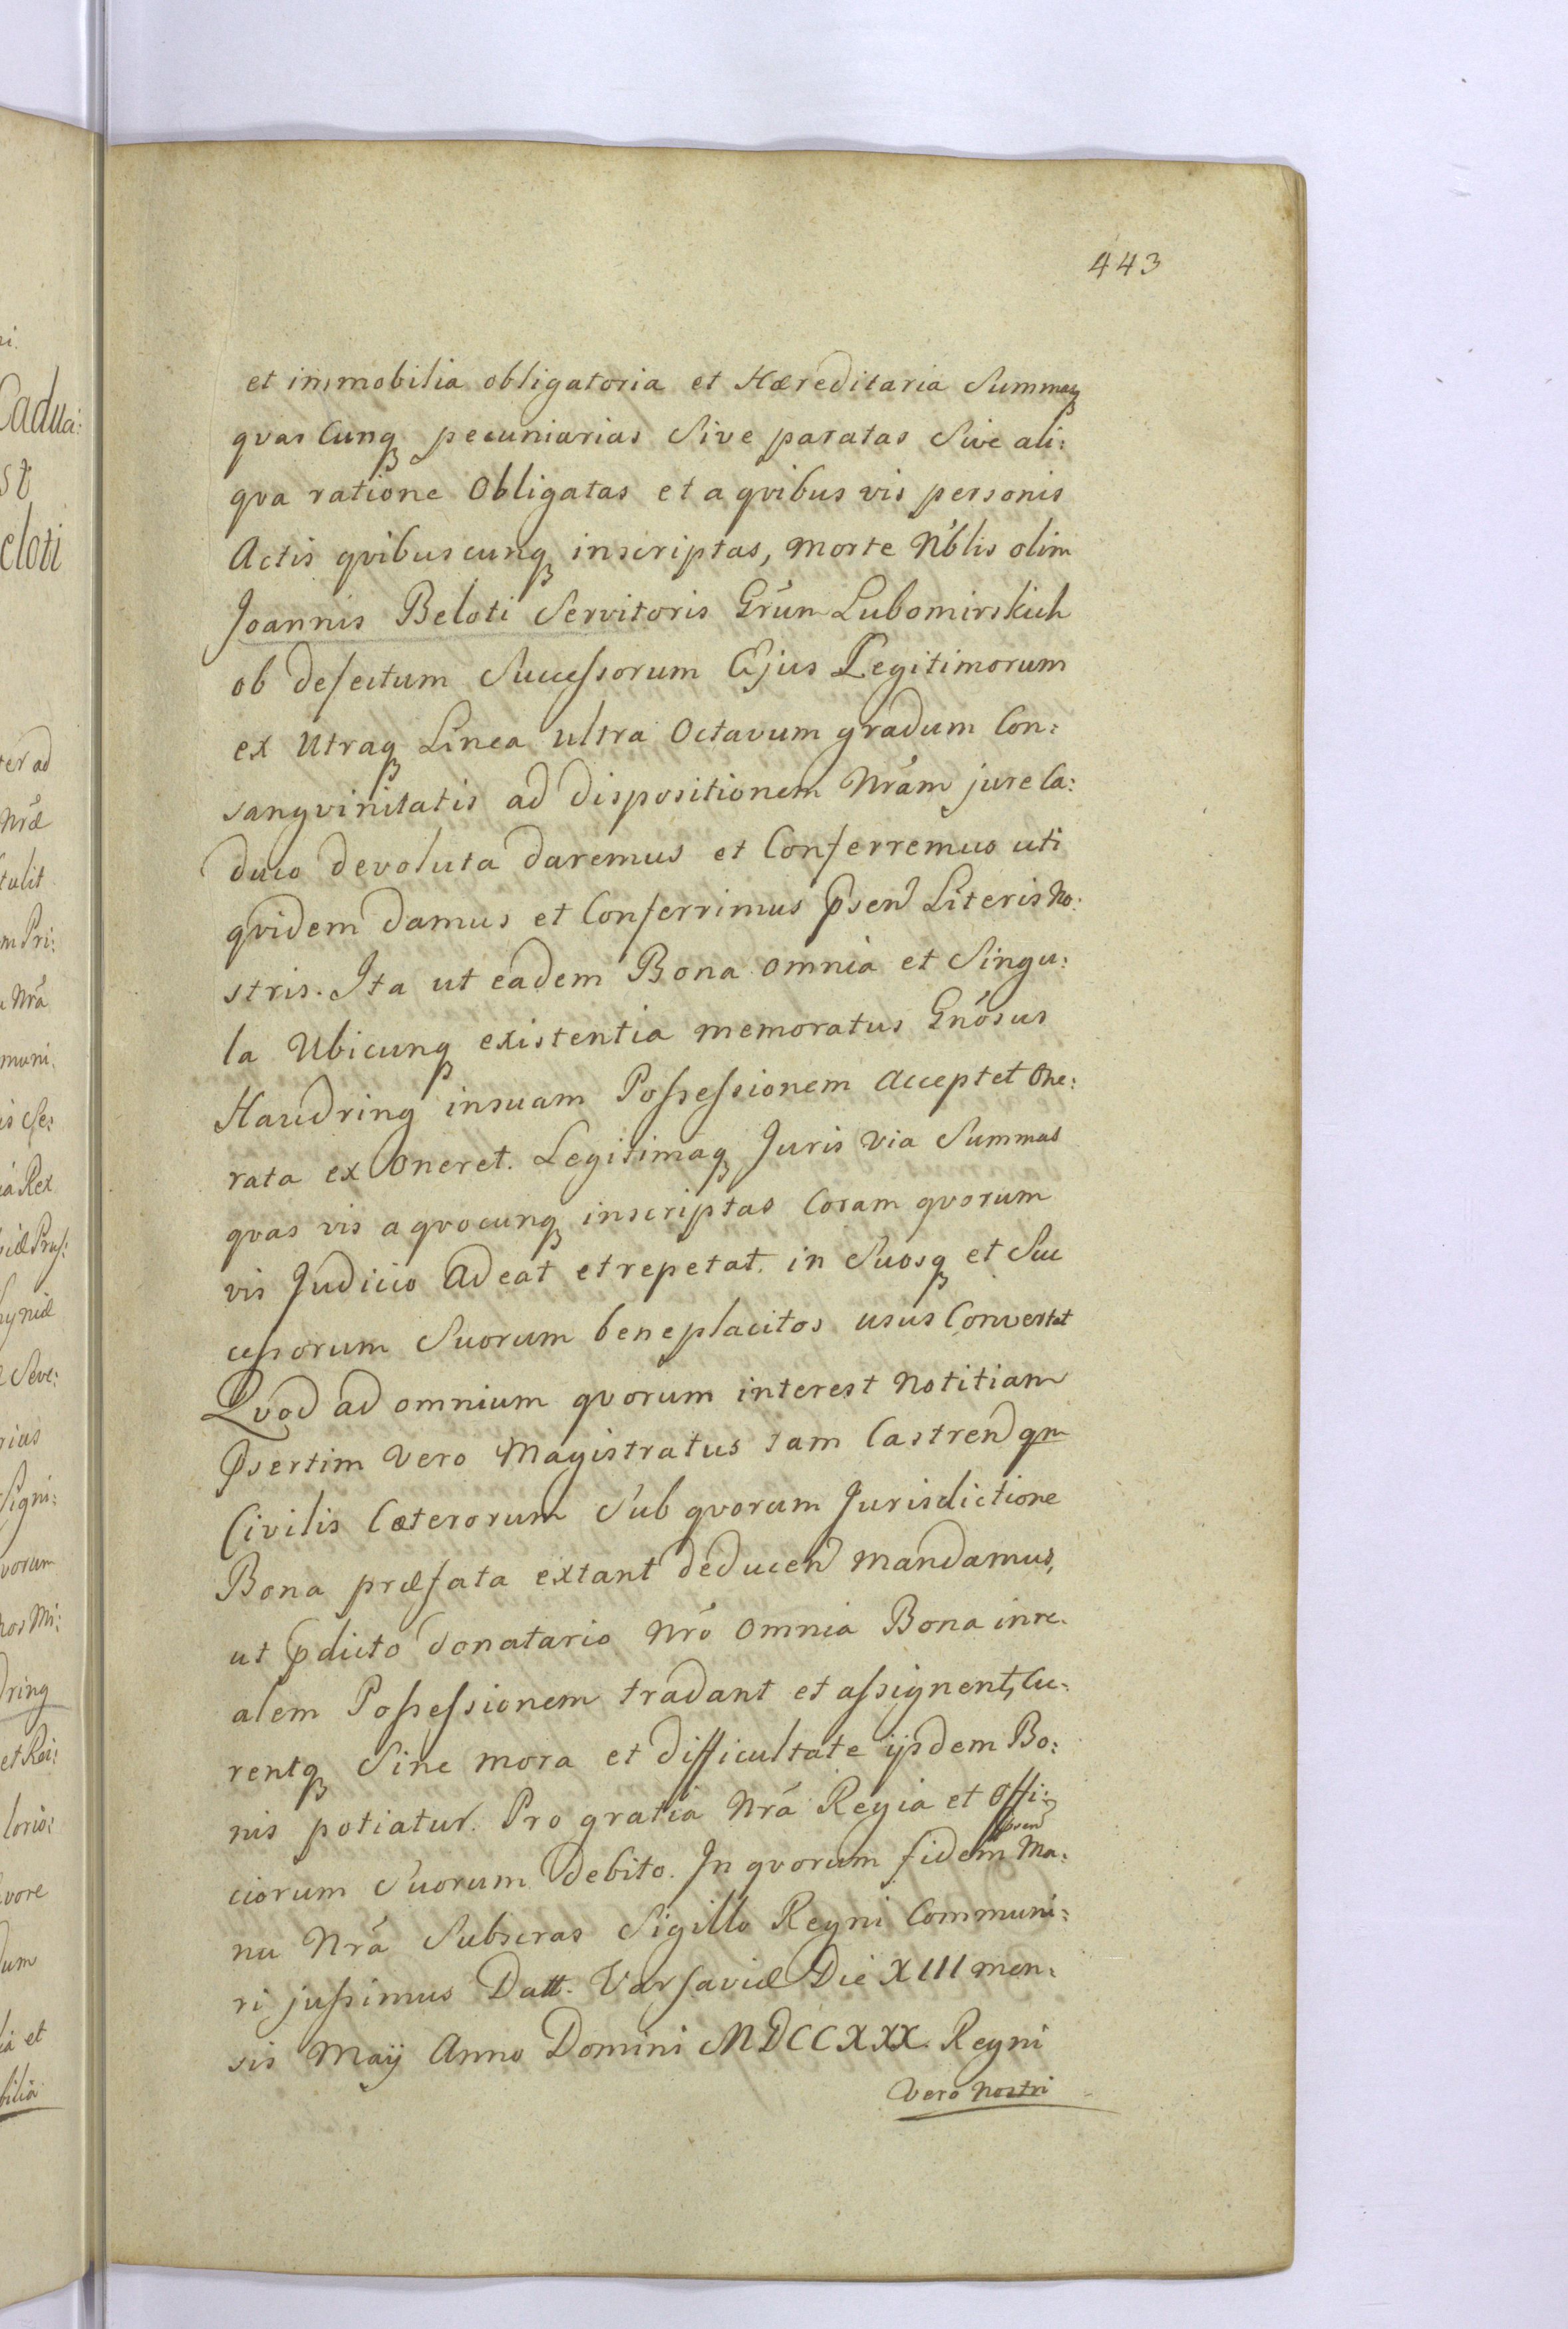 443
et immobilia obligatoria et Hæreditaria Summasq
qvas Cunq pecuniarias Sive paratas Sive ali:
qva ratione Obligatas et a qvibus vis personis
Actis qvibuscunq inscriptas, morte Nblis olim
Joannis Beloti Servitoris Grum Lubomirskich
ob defectum Successorum Ejus Legitimorum
ex Utraq Linea ultra Octavum gradum Con:
sangvinitatis ad dispositionem Nram jure Ca:
duco devoluta daremus et Conferremus uti
qvidem damus et Conferrimus psen Literis No:
stris. Ita ut eadem Bona omnia et Singu:
la Ubicunq existentia memoratus Gnosus
Haudring in suam Possessionem acceptet One:
rata ex Oneret. Legitimaq Juris via Summas
qvas vis a qvocunq inscriptas Coram qvorum
vis Judicio Adeat et repetat. in Suosq et Suc
cessorum Suorum beneplacitos usus Convertat
Qvod ad omnium qvorum interest Notitiam
Psertim vero Magistratus tam Castren qm
Civilis Cæterorum Sub qvorum Jurisdictione
Bona præfata extant deducen mandamus,
ut pdicto Donatario Nro Omnia Bona in re.
alem Possessionem tradant et assignent, Cu:
rentq Sine mora et difficultate ijsdem Bo:
nis potiatur. Pro gratia Nra Regia et Offi:
ciorum Suorum debito. In qvorum fidem psen Ma:
nu Nra Subscras Sigillo Regni Communi:
ri jussimus Datt. Varsaviæ Die XIII men:
sis Maij Anno Domini MDCCXXX Regni
vero nostri